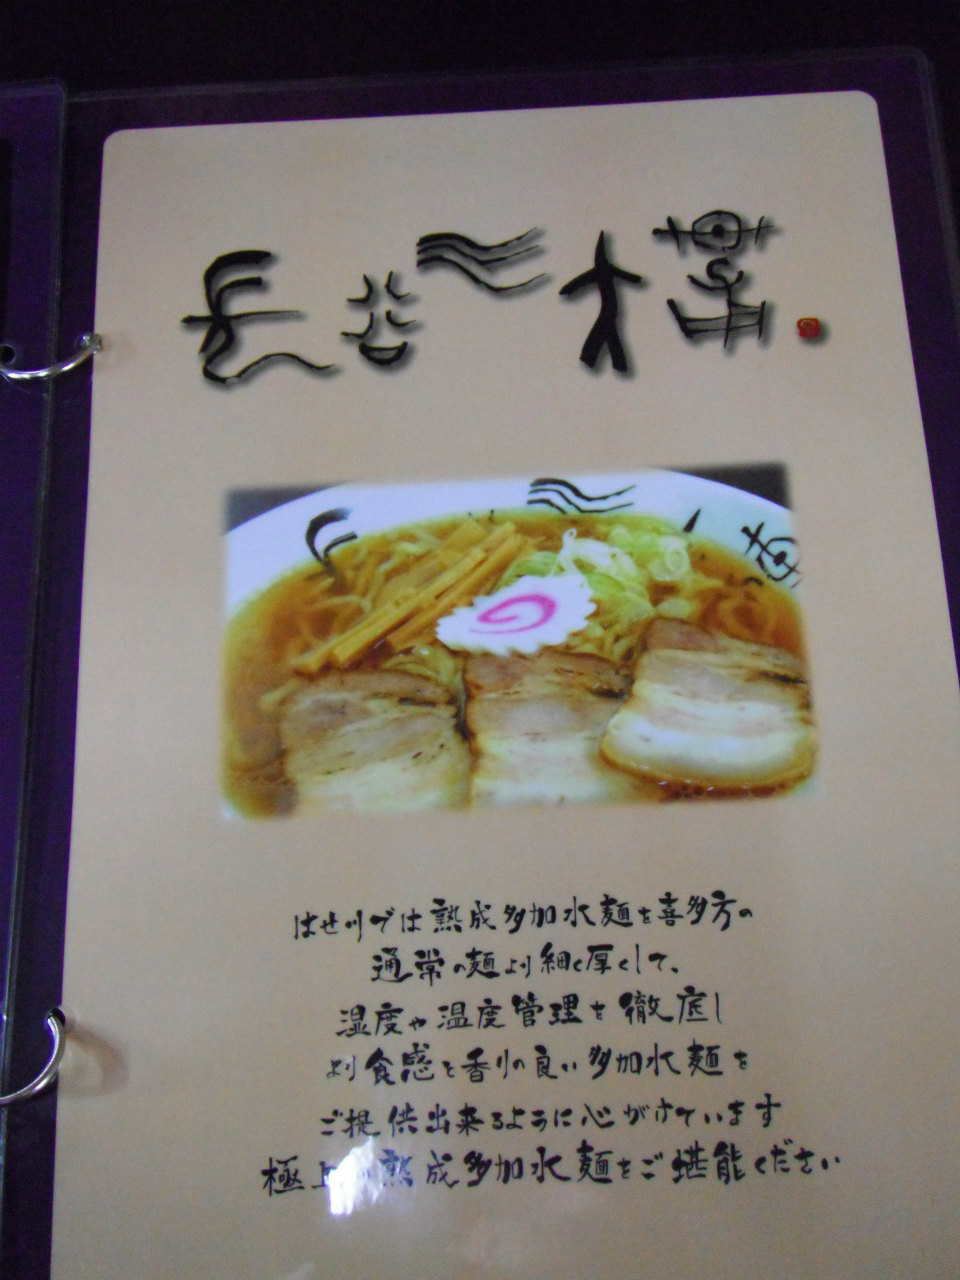 はせ川では熟成多加水麺を喜多方の
通常の麺より細く厚くして、
湿度や温度管理を徹底し
より食感と香りの良い多加水麺を
ご提供出来るように心がけています
極上の熟成多加水麺をご堪能ください